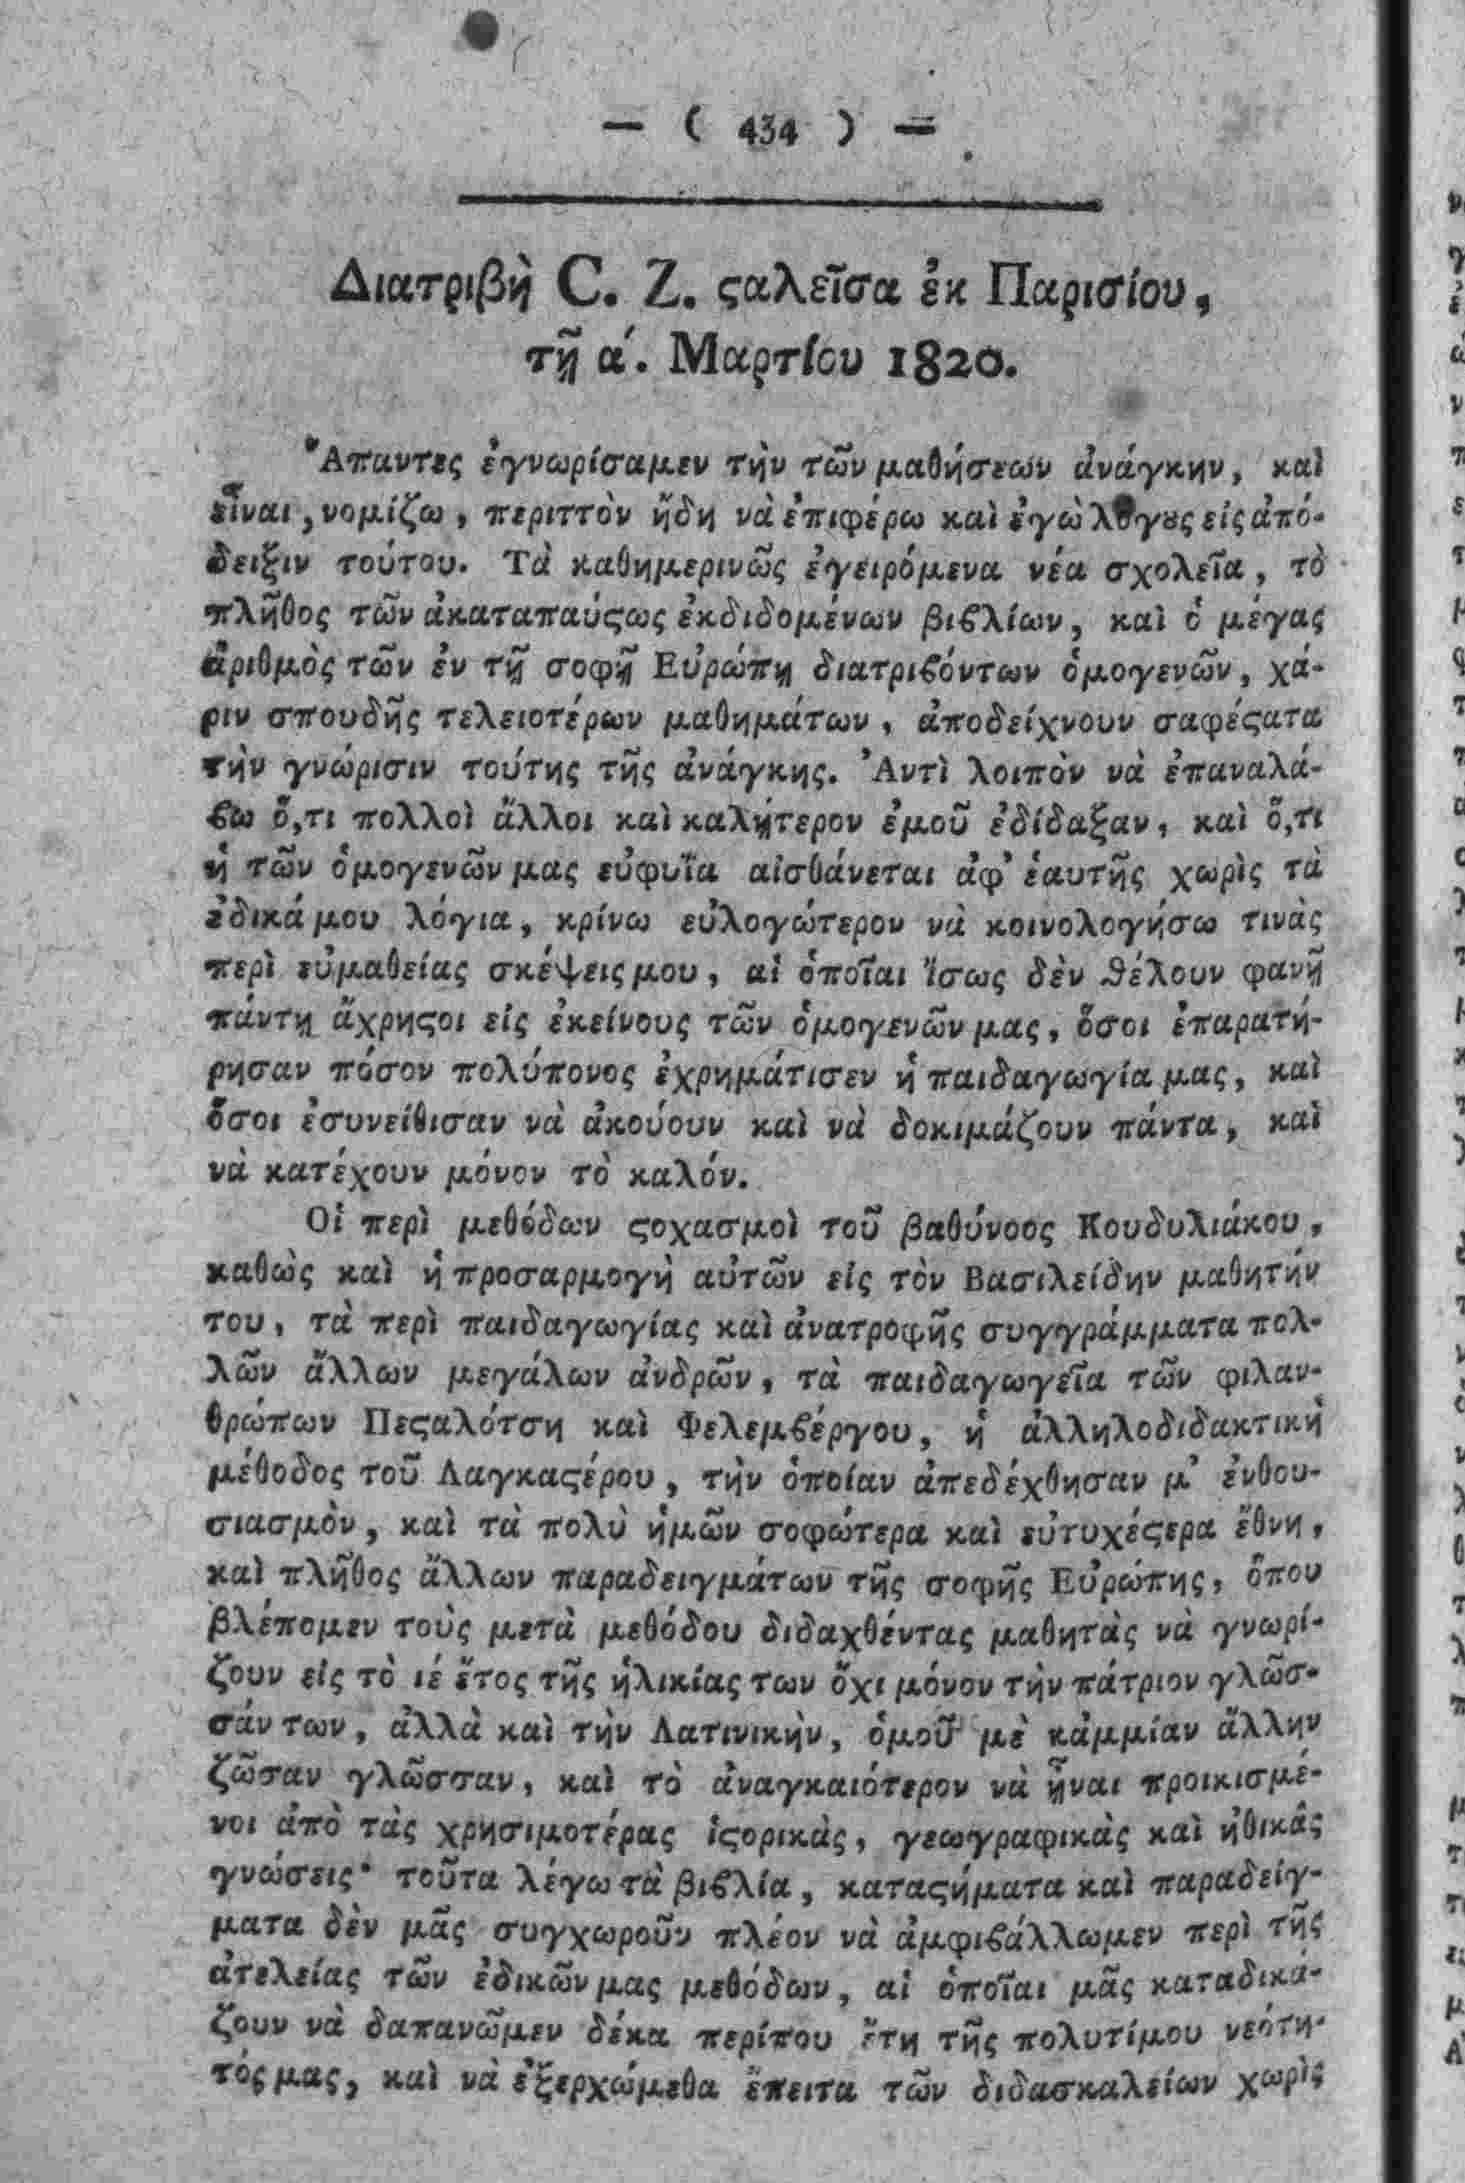 — ( 434 ) —
Διατριβὴ C. Z. ϛαλεῖσα ἐκ Παρισίου,
τῇ α΄. Μαρτίου 1820.
Ἅπαντες ἐγνωρίσαμεν τὴν τῶν μαθήσεων ἀνάγκην, καὶ
εἶναι, νομίζω, περιττὸν ἤδη νὰ ἐπιφέρω καὶ ἐγὼ λόγȣς εἰς ἀπό-
δειξιν τούτου. Τὰ καθημερινῶς ἐγειρόμενα νέα σχολεῖα, τὸ
πλῆθος τῶν ἀκαταπαύϛως ἐκδιδομένων βιϐλίων, καὶ ὁ μέγας
ἀριθμὸς τῶν ἐν τῇ σοφῇ Εὐρώπῃ διατριϐόντων ὁμογενῶν, χά-
ριν σπουδῆς τελειοτέρων μαθημάτων, ἀποδείχνουν σαφέϛατα
τὴν γνώρισιν τούτης τῆς ἀνάγκης. Ἀντὶ λοιπὸν νὰ ἐπαναλά-
ϐω ὅ,τι πολλοὶ ἄλλοι καὶ καλήτερον ἐμοῦ ἐδίδαξαν, καὶ ὅ,τι
ἡ τῶν ὁμογενῶν μας εὐφυΐα αἰσθάνεται ἀφ᾽ ἑαυτῆς χωρὶς τὰ
ἐδικά μου λόγια, κρίνω εὐλογώτερον νὰ κοινολογήσω τινὰς
περὶ εὐμαθείας σκέψεις μου, αἱ ὁποῖαι ἴσως δὲν ϑέλουν φανῇ
πάντῃ ἄχρηϛοι εἰς ἐκείνους τῶν ὁμογενῶν μας, ὅσοι ἐπαρατή-
ρησαν πόσον πολύπονος ἐχρημάτισεν ἡ παιδαγωγία μας, καὶ
ὅσοι ἐσυνείθισαν νὰ ἀκούουν καὶ νὰ δοκιμάζουν πάντα, καὶ
νὰ κατέχουν μόνον τὸ καλόν.
Οἱ περὶ μεθόδων ϛοχασμοὶ τοῦ βαθύνοος Κουδυλιάκου,
καθὼς καὶ ἡ προσαρμογὴ αὐτῶν εἰς τὸν Βασιλείδην μαθητήν
του, τὰ περὶ παιδαγωγίας καὶ ἀνατροφῆς συγγράμματα πολ-
λῶν ἄλλων μεγάλων ἀνδρῶν, τὰ παιδαγωγεῖα τῶν φιλαν-
θρώπων Πεϛαλότση καὶ Φελεμϐέργου, ἡ ἀλληλοδιδακτικὴ
μέθοδος τοῦ Λαγκαϛέρου, τὴν ὁποίαν ἀπεδέχθησαν μ᾽ ἐνθου-
σιασμὸν, καὶ τὰ πολὺ ἡμῶν σοφώτερα καὶ εὐτυχέϛερα ἔθνη,
καὶ πλῆθος ἄλλων παραδειγμάτων τῆς σοφῆς Εὐρώπης, ὅπου
βλέπομεν τοὺς μετὰ μεθόδου διδαχθέντας μαθητὰς νὰ γνωρί-
ζουν εἰς τὸ ιέ ἔτος τῆς ἡλικίας των ὄχι μόνον τὴν πάτριον γλῶσ-
σάν των, ἀλλὰ καὶ τὴν Λατινικὴν, ὁμοῦ μὲ κἀμμίαν ἄλλην
ζῶσαν γλῶσσαν, καὶ τὸ ἀναγκαιότερον νὰ ᾖναι προικισμέ-
νοι ἀπὸ τὰς χρησιμοτέρας ἱϛορικὰς, γεωγραφικὰς καὶ ἠθικὰς
γνώσεις· τοῦτα λέγω τὰ βιϐλία, καταϛήματα καὶ παραδείγ-
ματα δὲν μᾶς συγχωροῦν πλέον νὰ ἀμφιϐάλλωμεν περὶ τῆς
ἀτελείας τῶν ἐδικῶν μας μεθόδων, αἱ ὁποῖαι μᾶς καταδικά-
ζουν νὰ δαπανῶμεν δέκα περίπου ἔτη τῆς πολυτίμου νεότη-
τός μας, καὶ νὰ ἐξερχώμεθα ἔπειτα τῶν διδασκαλείων χωρὶς